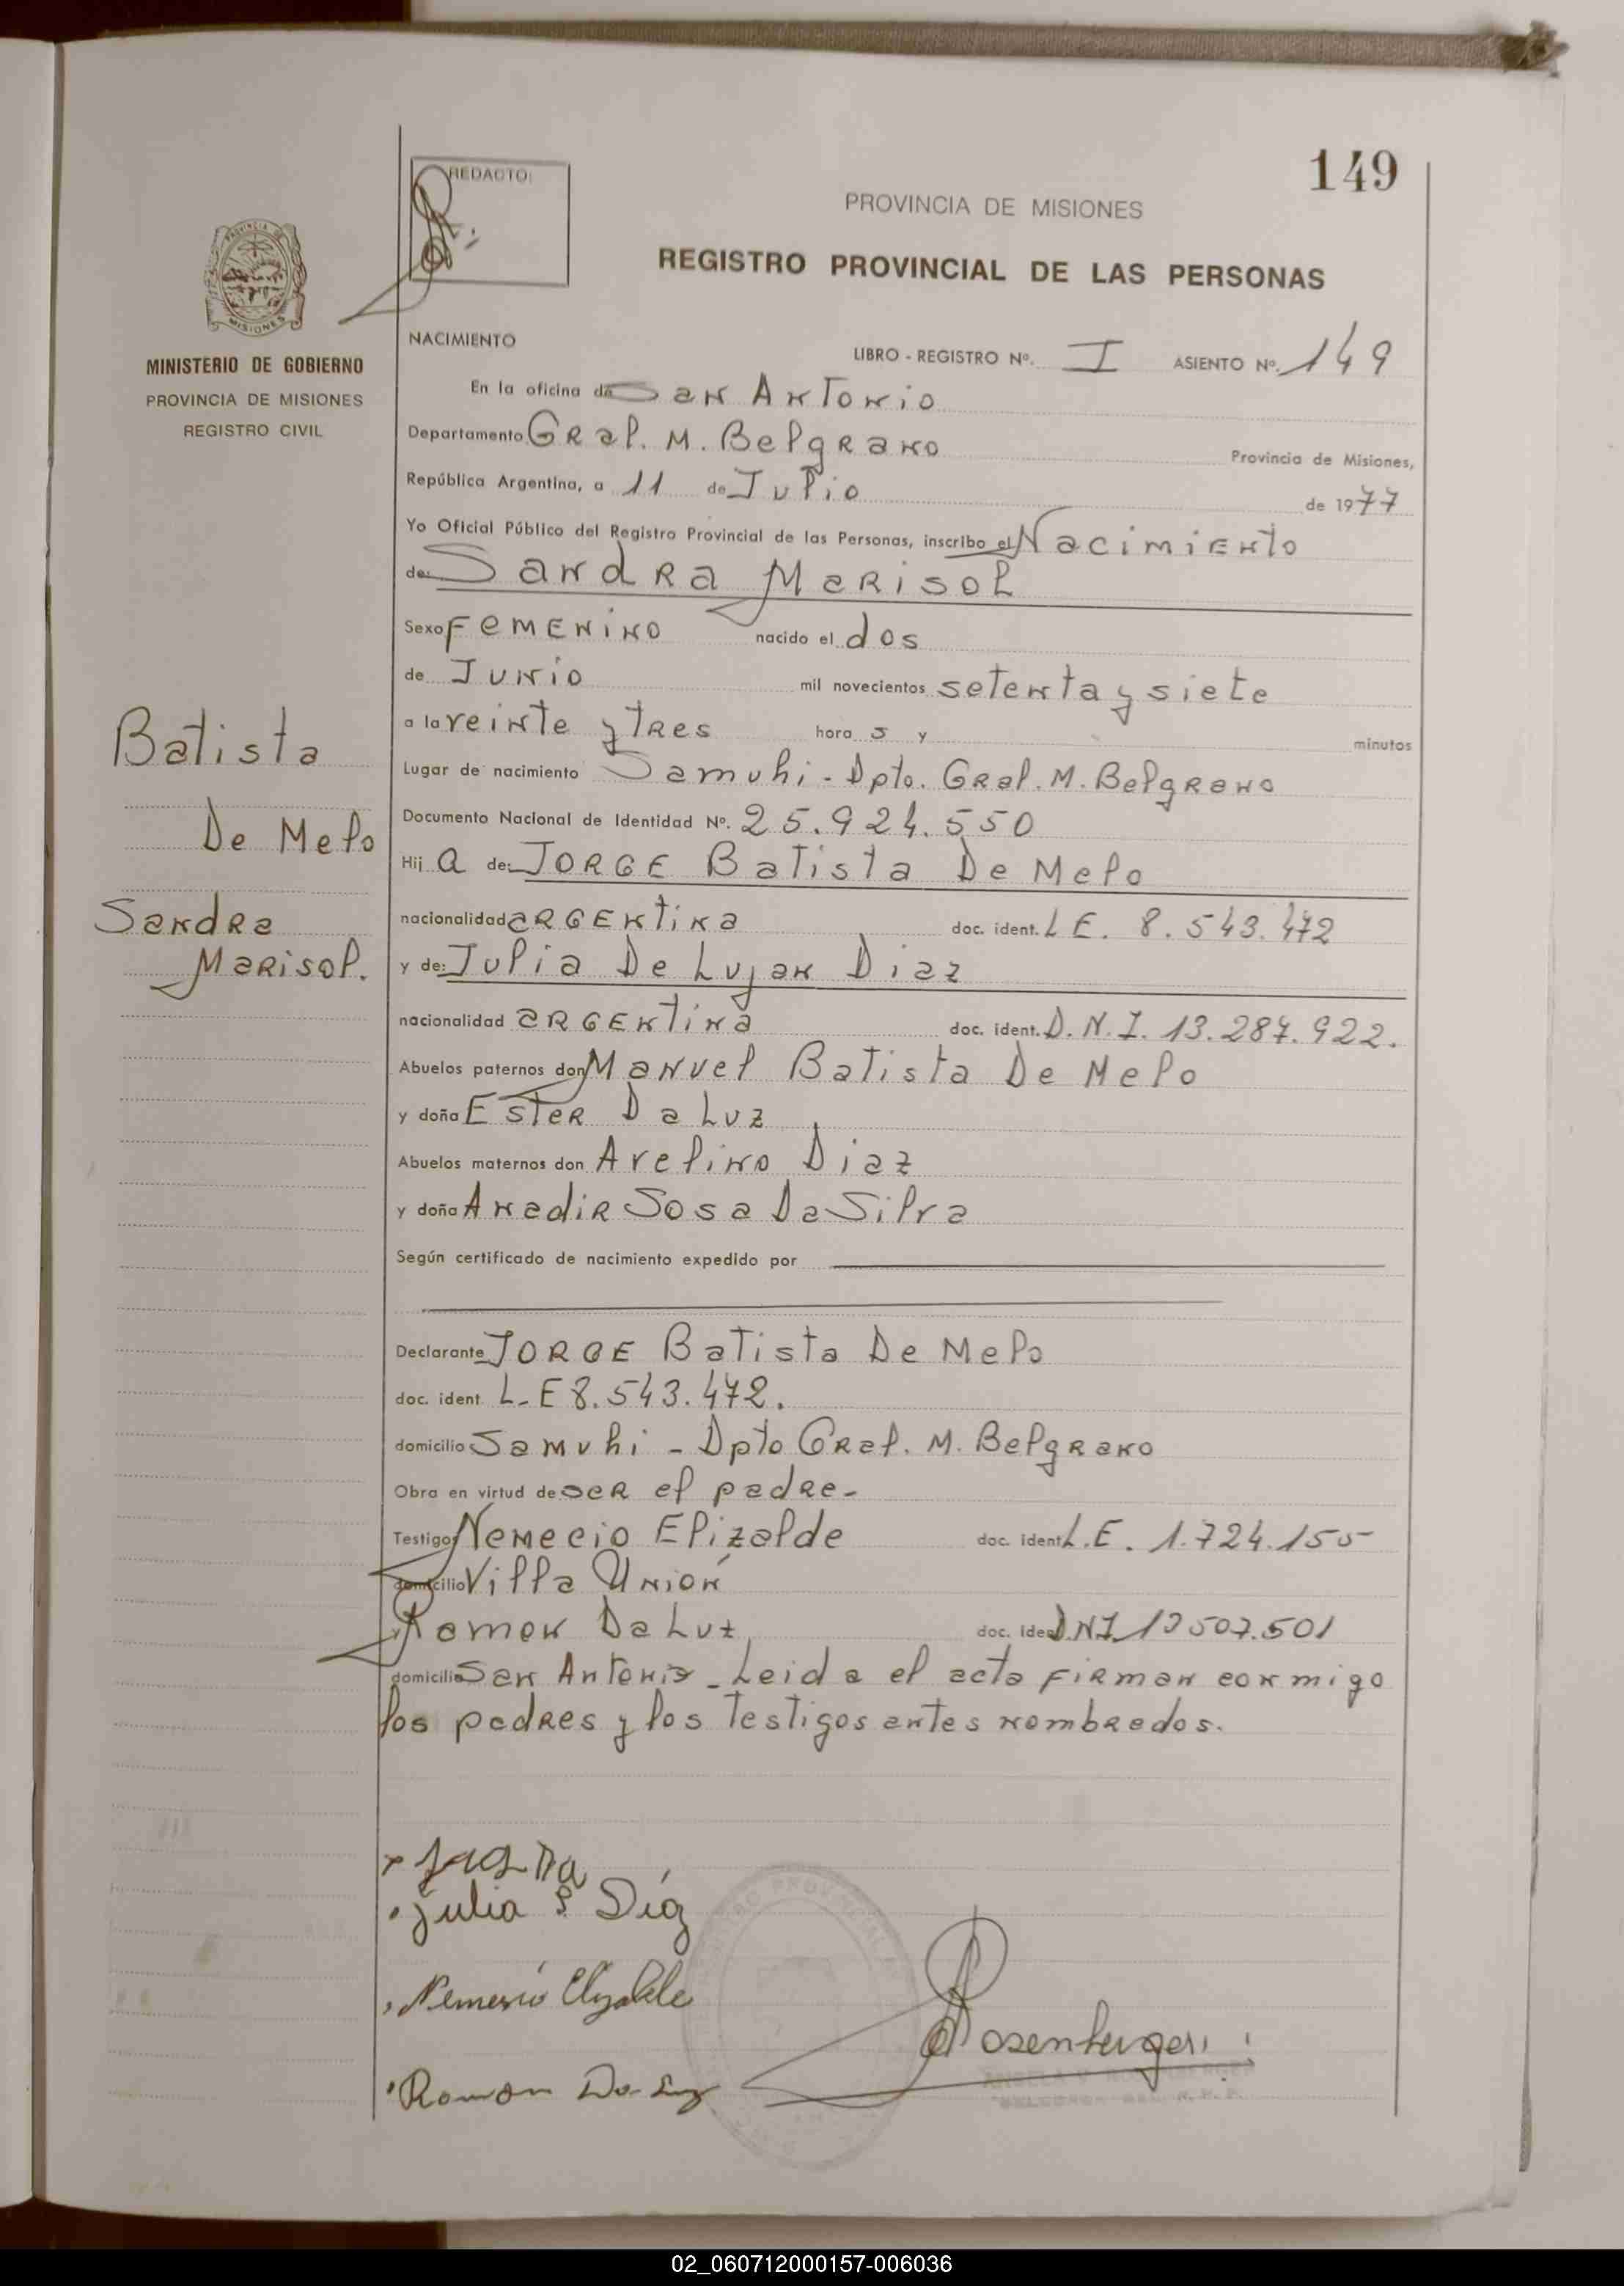 149
REDACTO:
PROVINCIA DE MISIONES
REGISTRO PROVINCIAL DE LAS PERSONAS
MISIONES
MINISTERIO DE GOBIERNO
PROVINCIA DE MISIONES
REGISTRO CIVIL
NACIMIENTO
LIBRO - REGISTRO Nº. I ASIENTO Nº. 149
En la oficina de San Antonio
Departamento Gral. M. Belgrano Provincia de Misiones,
República Argentina, a 11 de Julio de 1977
Yo Oficial Público del Registro Provincial de las Personas, inscribo el Nacimiento
de: Sandra Marisol
Sexo Femenino nacido el dos
de Junio mil novecientos setenta y siete
a la veinte y tres hora s y minutos
Lugar de nacimiento Samuhi - Dpto. Gral. M. Belgrano
Documento Nacional de Identidad Nº. 25.924.550
Hij a de: Jorge Batista De Melo
nacionalidad argentina doc. ident. L E. 8.543.472
y de: Julia De Lujan Diaz
nacionalidad argentina doc. ident. D.N.I. 13.287.922.
Abuelos paternos don Manuel Batista De Melo
y doña Ester Da Luz
Abuelos maternos don Avelino Diaz
y doña Anadir Sosa Da Silva
Según certificado de nacimiento expedido por
Declarante Jorge Batista De Melo
doc. ident. L-E 8.543.472.
domicilio Samuhi - Dpto Gral. M. Belgrano
Obra en virtud de ser el padre-
Testigos Nemecio Elizalde doc. ident. L.E. 1.724.155
domicilio Villa Unión
Ramon Da Luz doc. ident. D.N.I.
domicilio San Antonio - Leida el acta firman conmigo
los padres y los testigos antes nombrados.
Batista
De Melo
Sandra
Marisol.
Julia Díaz
Nemesio Elizalde
Ramon Da Luz
Rosenberger
02_060712000157-006036